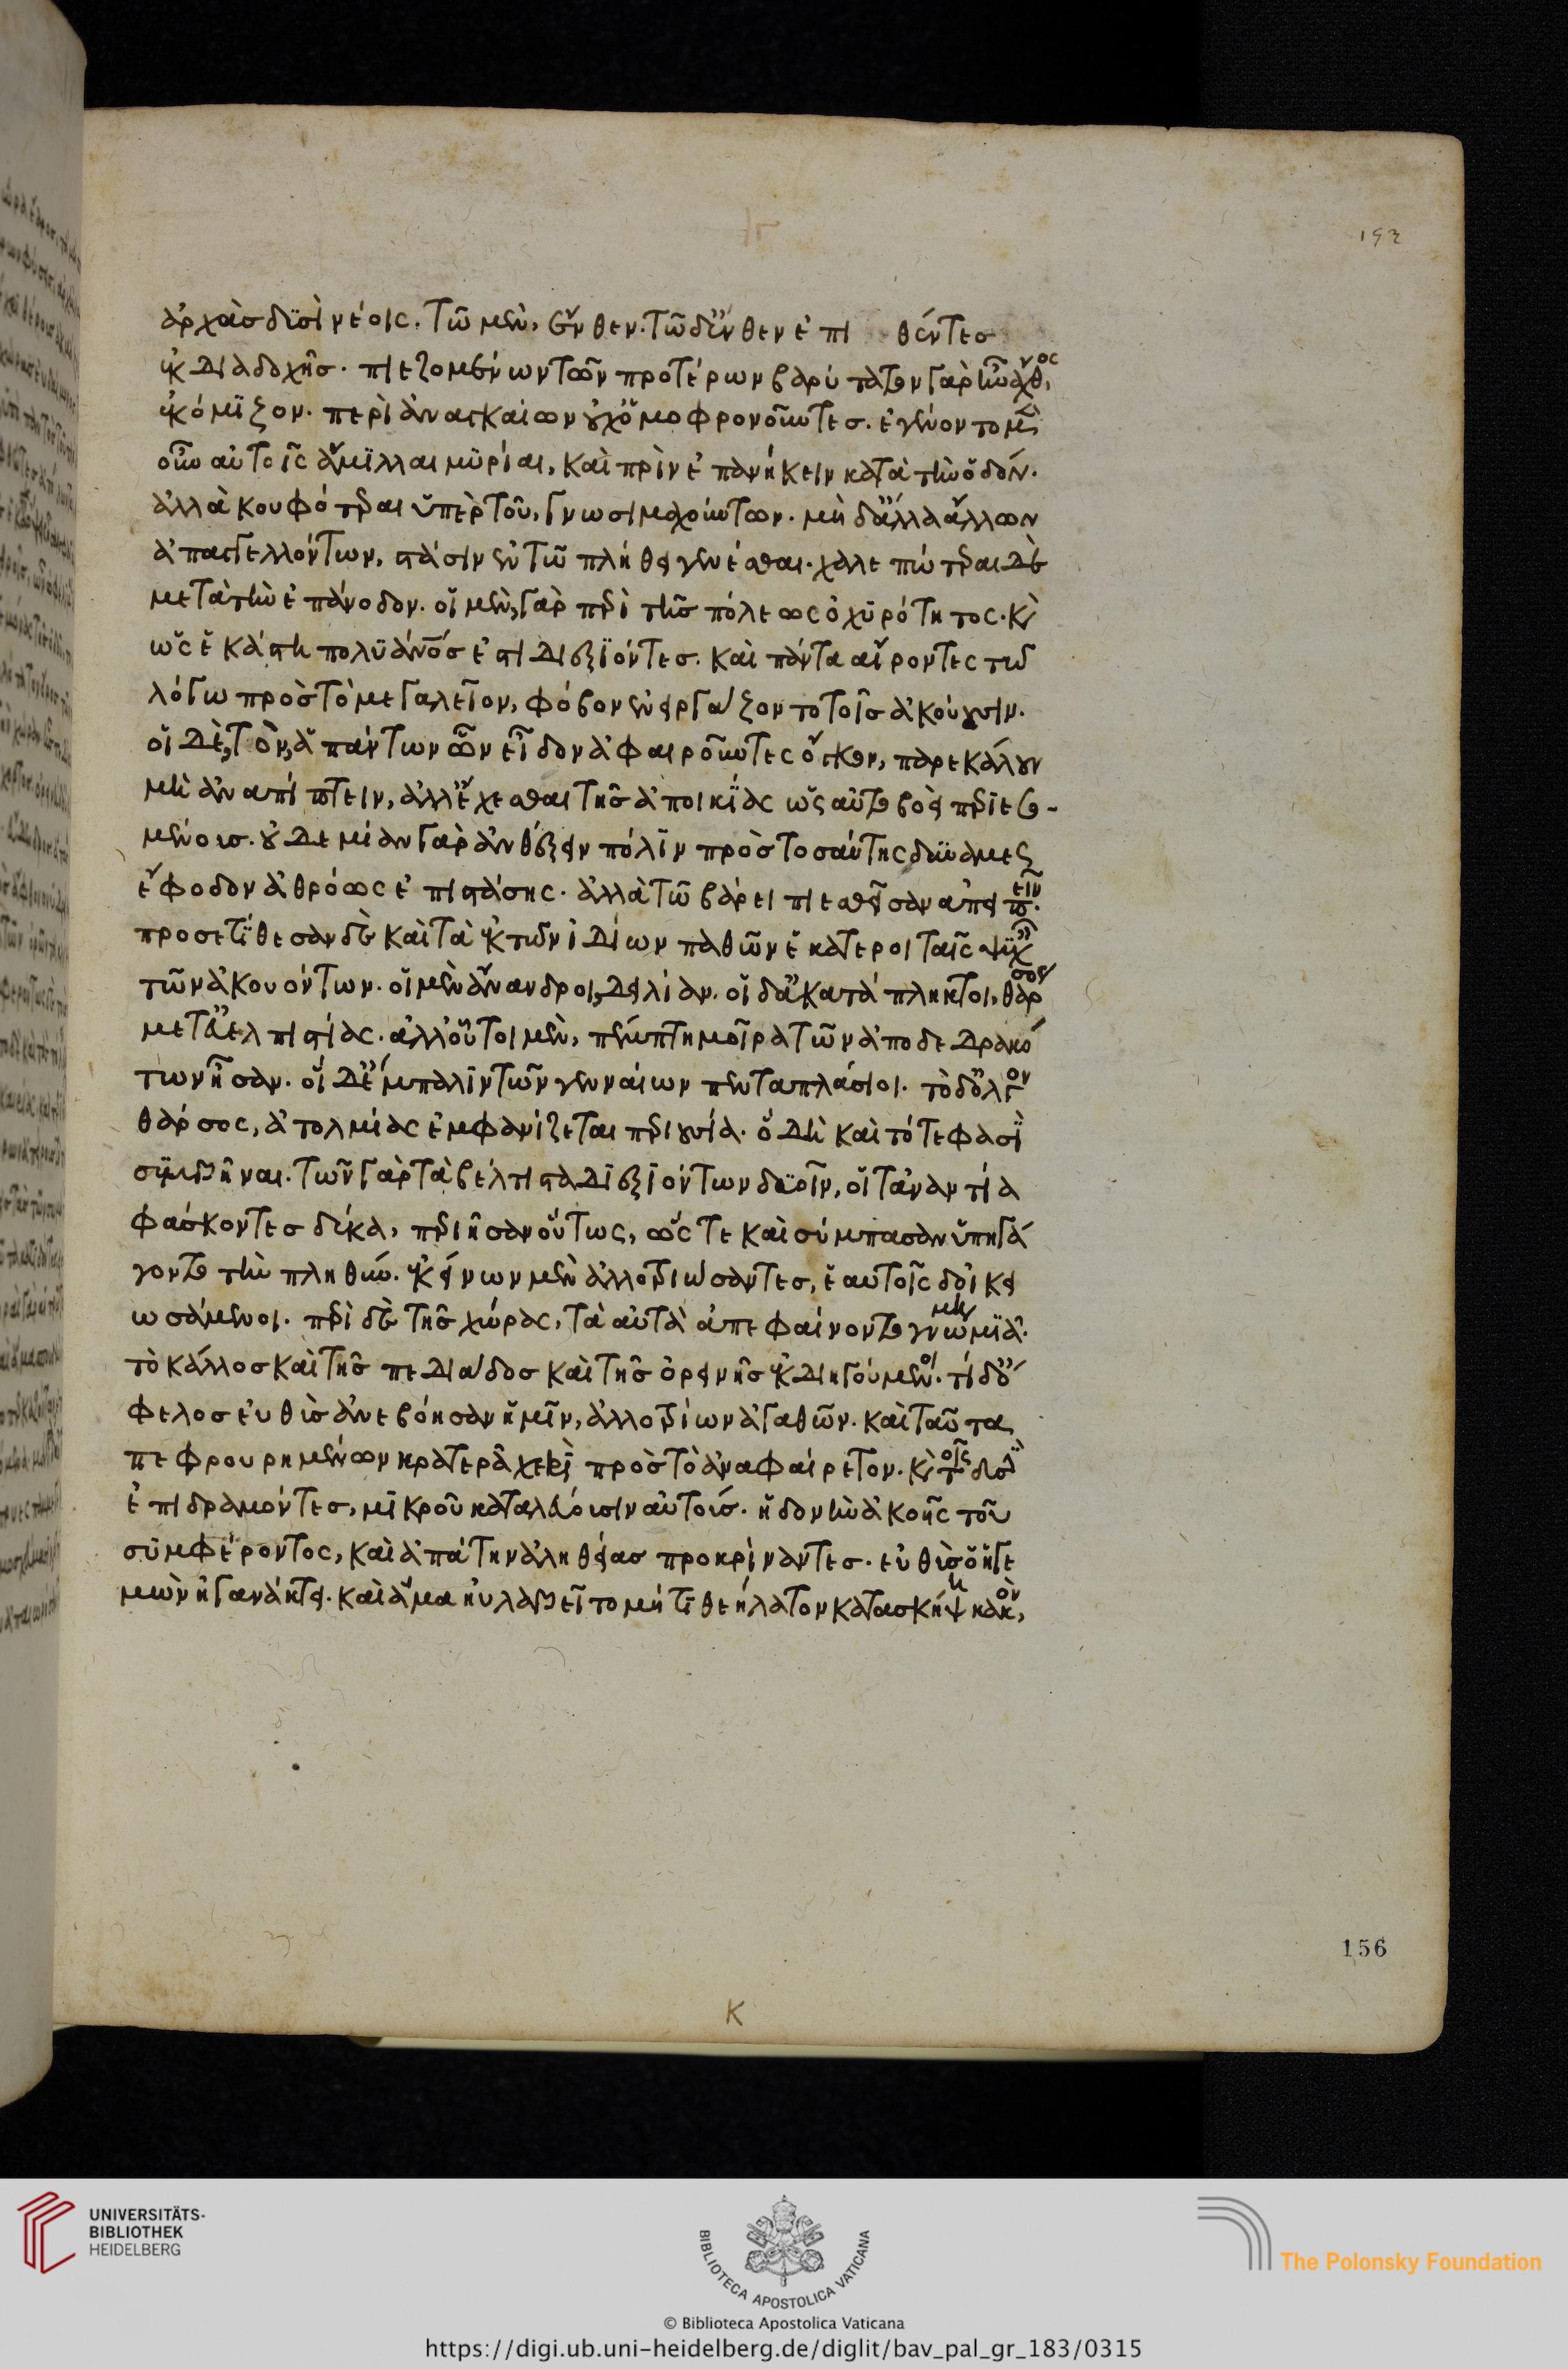 ἀρχὰς δϋσὶ νέοις. τῶ μὲν, ἔνθεν. τῶ δ' ἔνθεν ἐπι θέντες
ἐκ διαδοχῆς. πιεζομένων τῶν προτέρων βαρύτατον γὰρ ἦν ἄχθος,
ἐκόμϊζον. περὶ ἀναγκαίων οὐχ ὁμοφρονοῦντες. ἐγένοντο μὲν
οὖν αὐτοῖς ἅμϊλλαι μϋρίαι, καὶ πρὶν ἐπανήκειν κατὰ τὴν ὁδόν.
ἀλλὰ κουφότεραι ὑπὲρ τοῦ, γνωσιμαχούντων. μὴ δ' ἄλλα ἄλλων
ἀπαγγελλόντων, στάσιν ἐν τῶ πλήθει γενέσθαι. χαλεπώτεραι δὲ
μετὰ τὴν ἐπάνοδον. οἱ μὲν, γὰρ περὶ τῆς πόλεως ὀχϋρότητος. καὶ
ὡς ἑκάστη πολϋάνος ἐστι διεξϊόντες. καὶ πάντα αἴροντες τῶ
λόγω πρὸς τὸ μεγαλεῖον, φόβον ἐνειργάζοντο τοῖς ἀκούουσιν.
οἱ δὲ, τὸν, ἁπάντων ὧν εἶδον ἀφαιροῦντες ὄγκον, παρεκάλουν
μὴ ἀναπίπτειν, ἀλλ' ἔχεσθαι τῆς ἀποικΐας ὡς αὐτοβοεὶ περϊεσο-
μένοις. οὐδεμίαν γὰρ ἀνθέξειν πόλϊν πρὸς τοσαύτης δϋνάμεως
ἔφοδον ἀθρόως ἐπιστάσης. ἀλλὰ τῶ βάρει πιεσθεῖσαν ἀπειπεῖν.
προσετΐθεσαν δὲ καὶ τὰ ἐκ τῶν ἰδίων παθῶν ἑκάτεροι ταῖς ψϋχαῖς
τῶν ἀκουόντων. οἱ μὲν ἄνανδροι, δειλίαν. οἱ δ' ἀκατάπληκτοι, θάρσος
μετ' εὐελπιστίας. ἀλλ' οὗτοι μὲν, πέμπτη μοῖρα τῶν ἀποδεδρακό
των ἦσαν. οἱ δ' ἔμπαλϊν τῶν γενναίων πενταπλάσιοι. τὸ δ' ὀλίγον
θάρσος, ἀτολμίας ἐμφανίζεται περιουσία. ὃ δὴ καὶ τότε φασῒ
σϋμβῆναι. τῶν γὰρ τὰ βέλτιστα δϊεξϊόντων δϋοῖν, οἱ τἀναντία
φάσκοντες δέκα, περιῆσαν οὕτως, ὥστε καὶ σύμπασαν ὑπηγά
γοντο τὴν πληθύν. ἐκείνων μὲν ἀλλοτριώσαντες, ἑαυτοῖς δ' οἰκει
ωσάμενοι. περὶ δὲ τῆς χώρας, τὰ αὐτὰ ἀπεφαίνοντο γνώμη μϊᾶ.
τὸ κάλλος καὶ τῆς πεδιάδος καὶ τῆς ὀρεινῆς ἐκδιηγούμενοι. τί δ' ὄ
φελος εὐθὺς ἀνεβόησαν ἡμῖν, ἀλλοτρίων ἀγαθῶν. καὶ ταῦτα
πεφρουρημένων κρατερᾶ χειρῒ πρὸς τὸ ἀναφαίρετον. καὶ τοῖς δυσῒ
ἐπιδραμόντες, μϊκροῦ καταλεύουσιν αὐτούς. ἡδονὴν ἀκοῆς τοῦ
σϋμφέροντος, καὶ ἀπάτην ἀληθείας προκρίναντες. εὐθὺς ὁ ἡγε
μὼν ἠγανάκτει. καὶ ἅμα ηὐλαβεῖτο μή τϊ θεήλατον κατασκήψη κακὸν,
192
156
K
UNIVERSITÄTS-
BIBLIOTHEK
HEIDELBERG
BIBLIOTECA APOSTOLICA VATICANA
The Polonsky Foundation
© Biblioteca Apostolica Vaticana
https://digi.ub.uni-heidelberg.de/diglit/bav_pal_gr_183/0315